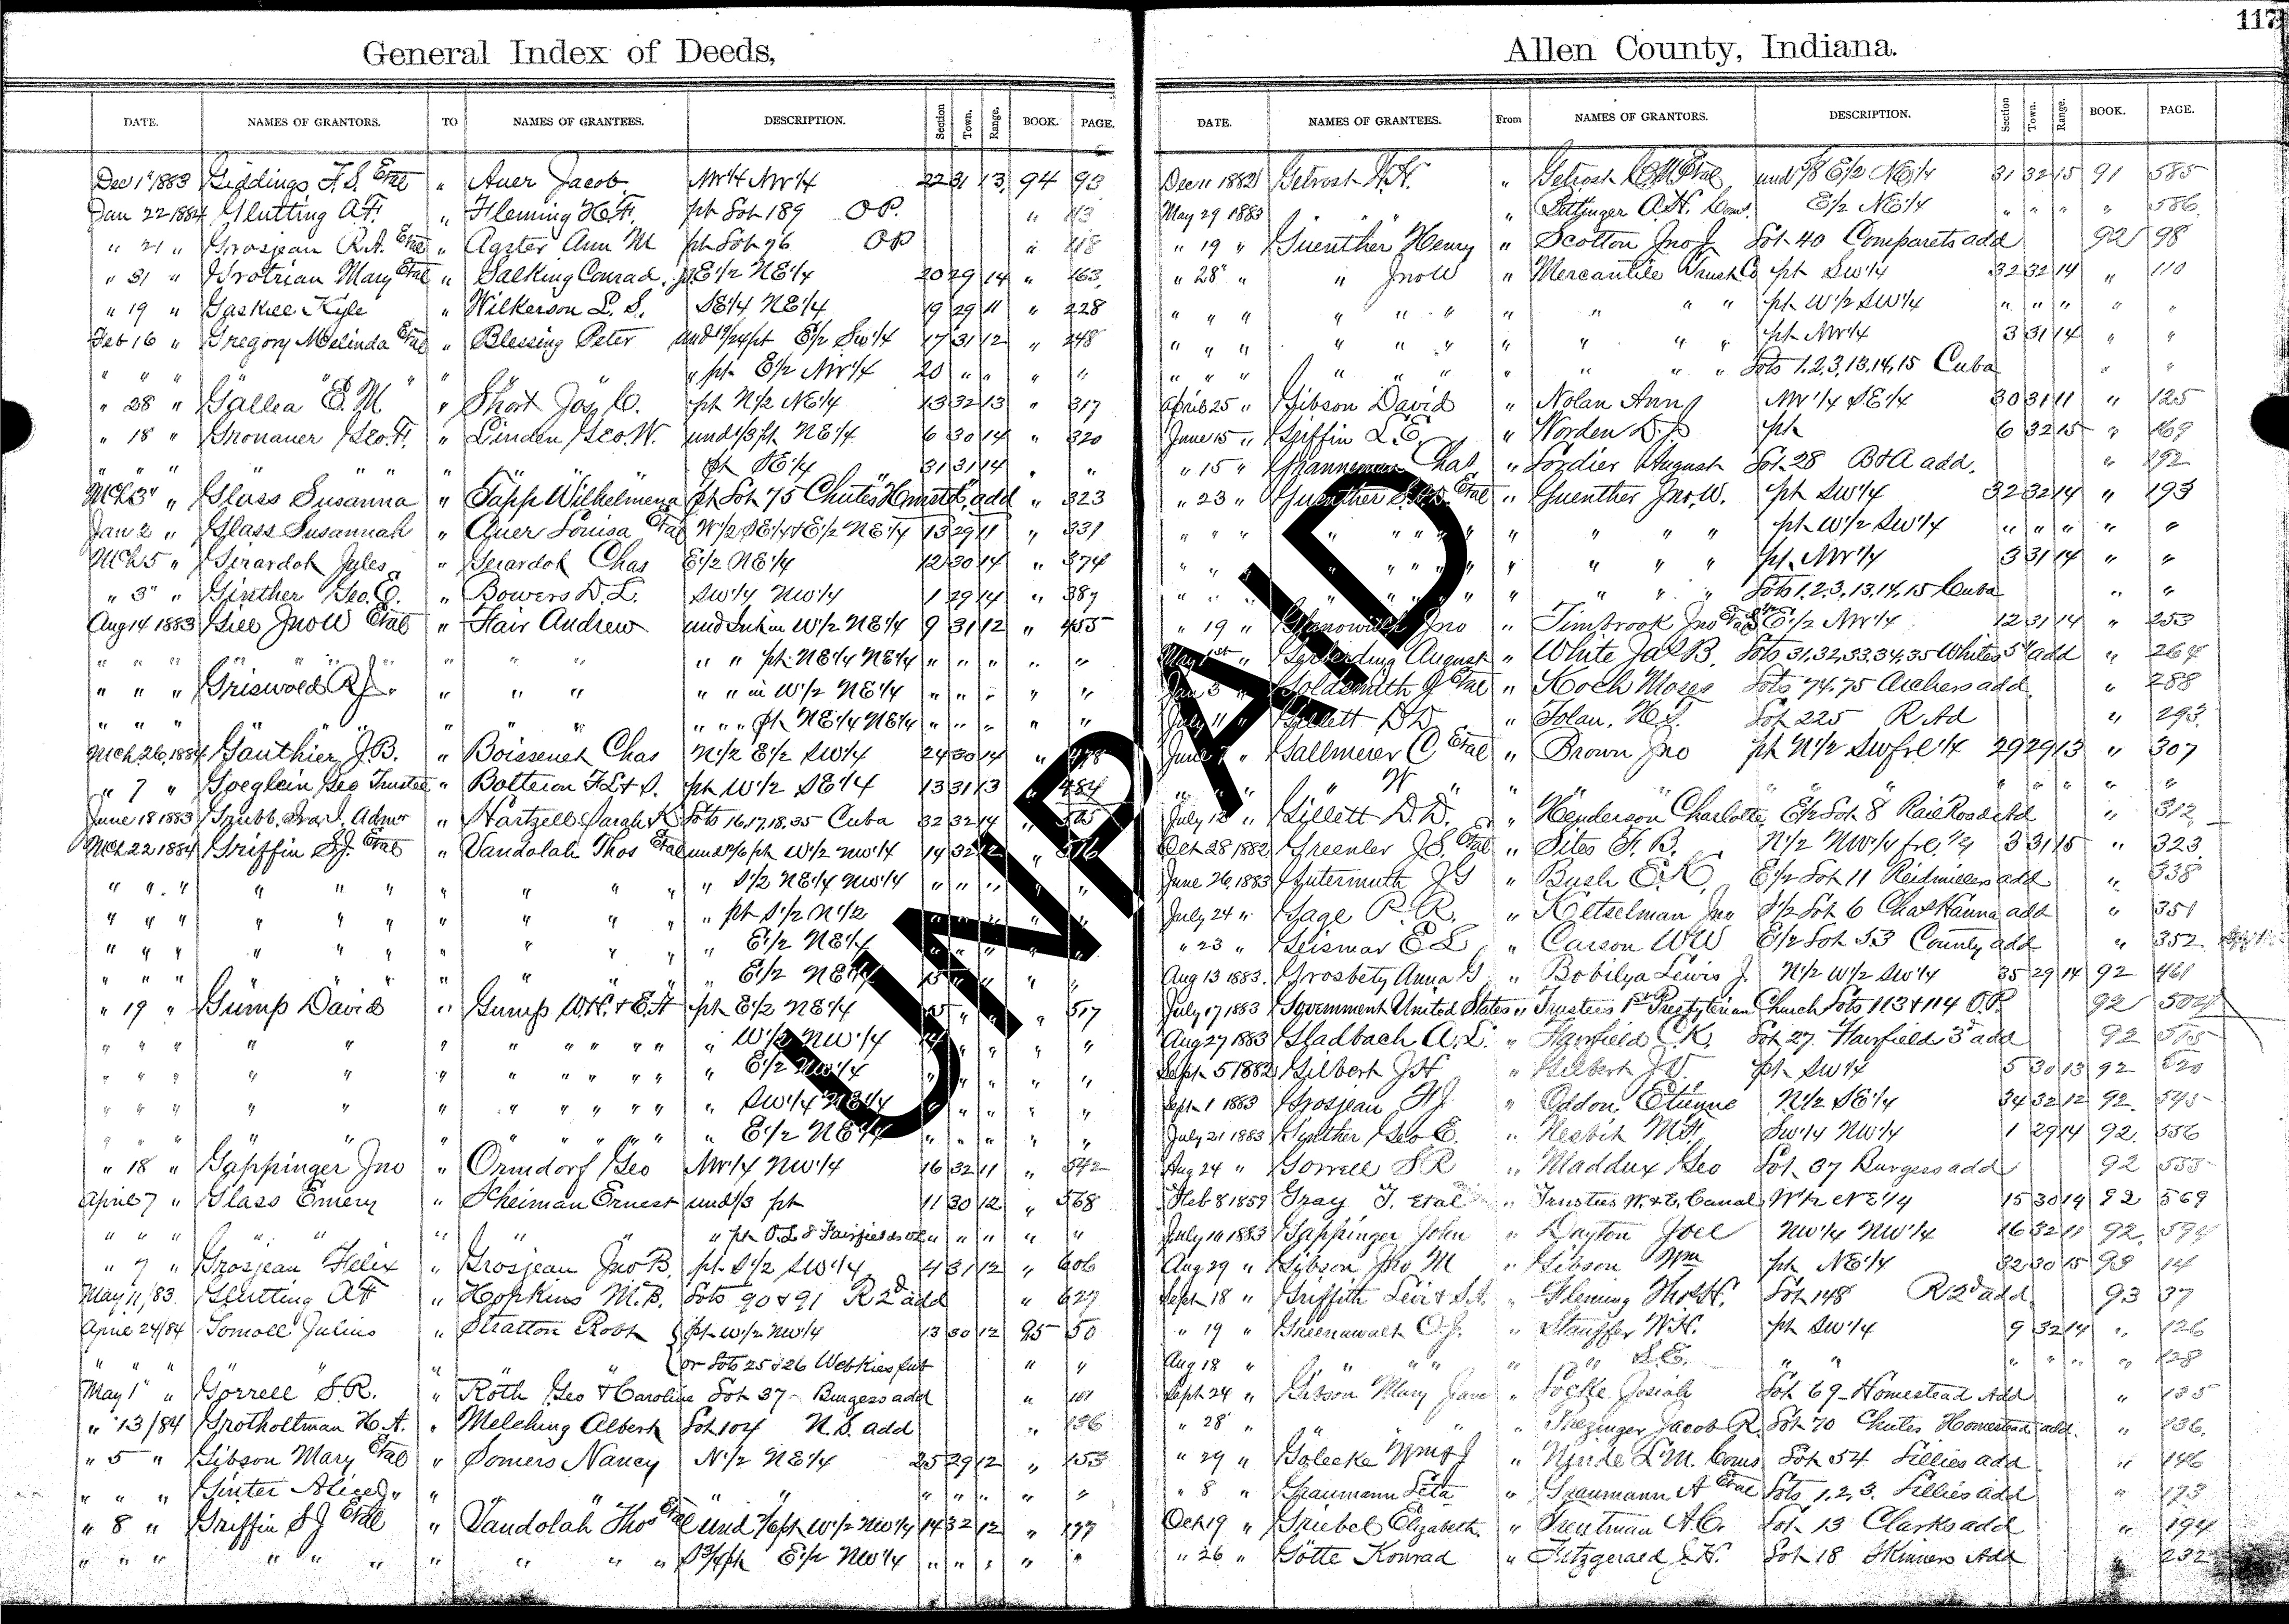 117
General Index of Deeds,
DATE. NAMES OF GRANTORS. TO NAMES OF GRANTEES. DESCRIPTION. Section Town. Range. BOOK. PAGE.
Dec 1" 1883 Giddings F.S. Etal " Auer Jacob NW1/4 NW1/4 22 31 13 94 93
Jan 22 1884 Glutting A.F. " Fleming H.F. pt Lot 189 O.P. " 113
" 21 " Grosjean R.A. Etal " Agster Ann M pt Lot 76 OP " 118
" 31 " Grotrian Mary Etal " Salking Conrad E1/2 NE1/4 20 29 14 " 163
" 19 " Gaskill Kyle " Wilkerson L.S. SE1/4 NE1/4 19 29 11 " 228
Feb 16 " Gregory Melinda Etal " Blessing Peter und 19/24 pt E1/2 SW1/4 17 31 12 " 248
" " " " " " " pt E1/2 NW1/4 20 " " " "
" 28 " Gallea E.M " Short Jos. C. pt N1/2 NE1/4 13 32 13 " 317
" 18 " Gronauer Geo. F. " Linden Geo. W. und 1/3 pt NE1/4 6 30 14 " 320
" " " " " " " " pt SE1/4 31 31 14 " "
Mch 3" " Glass Susanna " Tapp Wilhelmena pt Lot 75 Chutes Homstd. add " 323
Jan 2 " Glass Susannah " Auer Louisa Etal W1/2 SE1/4 & E1/2 NE1/4 13 29 11 " 331
Mch 5 " Girardot Jules " Gerardot Chas E1/2 NE1/4 12 30 14 " 374
" 3" " Ginther Geo. E. " Bowers D.L. SW1/4 NW1/4 1 29 14 " 387
Aug 14 1883 Gill Jno W Etal " Hair Andrew und Int in W1/2 NE1/4 9 31 12 " 455
" " " " " " " " " " " pt NE1/4 NE1/4 " " " " "
" " " Griswold R.J. " " " " " in W1/2 NE1/4 " " " " "
" " " " " " " " " " pt NE1/4 NE1/4 " " " " "
Mch 26, 1884 Gauthier J.B. " Boissenet Chas N1/2 E1/2 SW1/4 24 30 14 " 478
" 7 " Goeglein Geo Trustee " Bolteion F.L. & S. pt W1/2 SE1/4 13 31 13 " 484
June 18 1883 Grubb, Ira J. Admr " Hartzell Sarah K Lots 16.17.18.35 Cuba 32 32 14 "
Mch 22 1884 Griffin S.J. Etal " Vandolah Thos Etal und 5/6 pt W1/2 NW1/4 14 32 12 " 516
" " " " " " " " " " S1/2 NE1/4 NW1/4 " " " " "
" " " " " " " " " " pt S1/2 N1/2 " " " " "
" " " " " " " " " " E1/2 NE1/4 " " " " "
" " " " " " " " " " E1/2 NE1/4 15 " " " "
" 19 " Gump David " Gump W.H. & E.A pt E1/2 NE1/4 15 " " " 517
" " " " " " " " " " " W1/2 NW1/4 14 " " " "
" " " " " " " " " " " E1/2 NW1/4 " " " " "
" " " " " " " " " " " SW1/4 NE1/4 " " " " "
" " " " " " " " " " " E1/2 NE1/4 " " " " "
" 18 " Gappinger Jno " Orndorf Geo NW1/4 NW1/4 16 32 11 " 542
April 7 " Glass Emery " Scheiman Ernest und 1/3 pt 11 30 12 " 568
" " " " " " " " " pt O.L 8 Fairfields " " " " "
" 7 " Grosjean Felix " Grosjean Jno B. pt S1/2 SW1/4 4 31 12 " 606
May 11/83 Glutting A F " Hopkins M.B. Lots 90 & 91 R 2d add " 627
April 24/84 Gomoll Julius " Stratton Robt pt W1/2 NW1/4 13 30 12 95 50
" " " " " " " or Lots 25 & 26 Webkies sub " "
May 1" " Gorrell S.R. " Roth Geo & Caroline Lot 37 Burgess add " 101
" 13/84 Grotholtman H.A. " Melching Albert Lot 104 N.S. add " 136
" 5 " Gibson Mary Etal " Somers Nancy N1/2 NE1/4 25 29 12 " 153
" " " Ginter Alice J " " " " " " " " " " "
" 8 " Griffin S J Etal " Vandolah Thos Etal und 5/6 pt W1/2 NW1/4 14 32 12 " 177
" " " " " " " " " " S3/4 pt E1/2 NW1/4 " " " " "
Allen County, Indiana.
DATE. NAMES OF GRANTEES. From NAMES OF GRANTORS. DESCRIPTION. Section Town. Range. BOOK. PAGE.
Dec 11 1882 Getrost W.H. " Getrost C M Etal und 5/8 E1/2 NE1/4 31 32 15 91 585
May 29 1883 " " " " Dittinger A.H. Coms. E1/2 NE1/4 " " " " 586
" 19 " Guenther Henry " Scotton Jno J. Lot 40 Comparets add 92 98
" 28" " " Jno W " Mercantile Trust Co pt SW1/4 32 32 14 " 110
" " " " " " " " " " pt W1/2 SW1/4 " " " " "
" " " " " " " " " " pt NW1/4 3 31 14 " "
" " " " " " " " " " Lots 1,2,3,13,14,15 Cuba " "
April 25 " Gibson David " Nolan Ann NW1/4 SE1/4 30 31 11 " 125
June 15 " Griffin L.E. " Worden D.J. pt 6 32 15 " 169
" 15 " Granneman Chas " Lordier August Lot 28 B & A add. " 192
" 23 " Guenther Etal " Guenther Jno. W. pt SW1/4 32 32 14 " 193
" " " " " " " " " " " pt W1/2 SW1/4 " " " " "
" " " " " " " " " " " pt NW1/4 3 31 14 " "
" " " " " " " " " " " Lots 1,2,3,13,14,15 Cuba " "
" 19 " Jno " Timbrook Jno Etal E1/2 NW1/4 12 31 14 " 253
May 1st " Gerberding August " White Jas B. Lots 31,32,33,34,35 Whites 5th add " 264
Jan 3 " Goldsmith J Etal " Koch Moses Lots 74.75 Archers add " 288
July 11 " Gillett D.D. " Tolan. H.S. Lot 225 R Ad " 293
June " Gallmeier C Etal " Brown Jno pt N1/2 SWfrl1/4 29 29 13 " 307
" " " " W " " " " " " " " " " "
July 12 " Gillett D.D. " Henderson Charlotte E1/2 Lot 8 Rail Road Ad " 312
Oct 28 1882 Greenler J.S. Etal " Sites F.B. N1/2 NW1/4 frl. 1/4 3 31 15 " 323
June 26, 1883 Gutermuth J G " Bush E.K. E1/2 Lot 11 Reidmillers add " 338
July 24 " Gage R.R. " Ketselman Jno S1/2 Lot 6 Chas Hanna add " 351
" 23 " Geismar E L " Carson W W E1/2 Lot 53 County add " 352
Aug 13 1883. Grosbety Anna G. " Bobilya Lewis J. N1/2 W1/2 SW1/4 35 29 14 92 461
July 17 1883 Government United States " Trustees 1st Presbyterian Church Lots 113 & 114 O.P. 92 504
Aug 27 1883 Gladbach A.L. " Hanfield C.K. Lot 27 Hanfield 3d add 92
Sept 5 1882 Gilbert J H " Gilbert J.V. pt SW1/4 5 30 13 92 520
Sept 1 1883 Grosjean F J " Oddon Etienne N1/2 SE1/4 34 32 12 92 545
July 21 1883 Gynther Geo E. " Nesbit M.F. SW1/4 NW1/4 1 29 14 92 556
Aug 24 " Gorrell S R " Maddux Geo Lot 37 Burgess add 92 555
Feb 8 1859 Gray T. etal " Trustees W. & E. Canal W1/2 NE1/4 15 30 14 92 569
July 10 1883 Gappinger John " Dayton Joel NW1/4 NW1/4 16 32 11 92 594
Aug 29 " Gibson Jno M " Gibson Wm pt NE1/4 32 30 15 93 14
Sept 18 " Griffith Levi & S.A. " Fleming Thos H. Lot 148 R 2d add 93 37
" 19 " Greenawalt O.J. " Stauffer W.H. pt SW1/4 9 32 14 " 126
Aug 18 " " " " " " S.E. " " " " " " 128
Sept 24 " Gibson Mary Jane " Locke Josiah Lot 69 Homestead Add " 135
" 28 " " " " Jacob R. Lot 70 Chutes Homestead add. " 136
" 29 " Golecke Wm & J " Ninde L M. Coms Lot 54 Lillies add " 146
" 8 " Graumann Leta " Graumann A Etal Lots 1,2,3. Lillies add " 173
Oct 19 " Griebel Elizabeth " Trentman A.C. Lot 13 Clarks add " 194
" 26 " Götte Konrad " Fitzgerald J.H. Lot 18 Skinners Add " 232
UNPAID